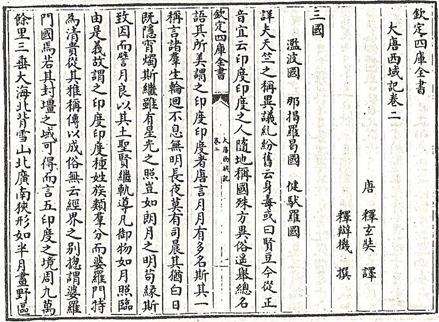 欽定四庫全書
大唐西域記卷二
唐 釋玄奘 譯
釋辯機 撰
三國
濫波國 那揭羅曷國 健馱羅國
詳夫天竺之稱異議糾紛舊云身毒或曰賢豆今從正
音宜云印度印度之人隨地稱國殊方異俗遥舉總名
欽定四庫全書 大唐西域記 卷二
語其所美謂之印度印度者唐言月月有多名斯其一
稱言諸羣生輪迴不息無明長夜莫有司晨其猶白日
既隱宵燭斯繼雖有星光之照豈如朗月之明茍緣斯
致因而譬月良以其土聖賢繼軌導凡御物如月照臨
由是義故謂之印度印度種姓族類羣分而婆羅門特
為清貴從其雅稱傳以成俗無云經界之別揔謂婆羅
門國焉若其封壃之域可得而言五印度之境周九萬
餘里三垂大海北背雪山北廣南狹形如半月畫野區